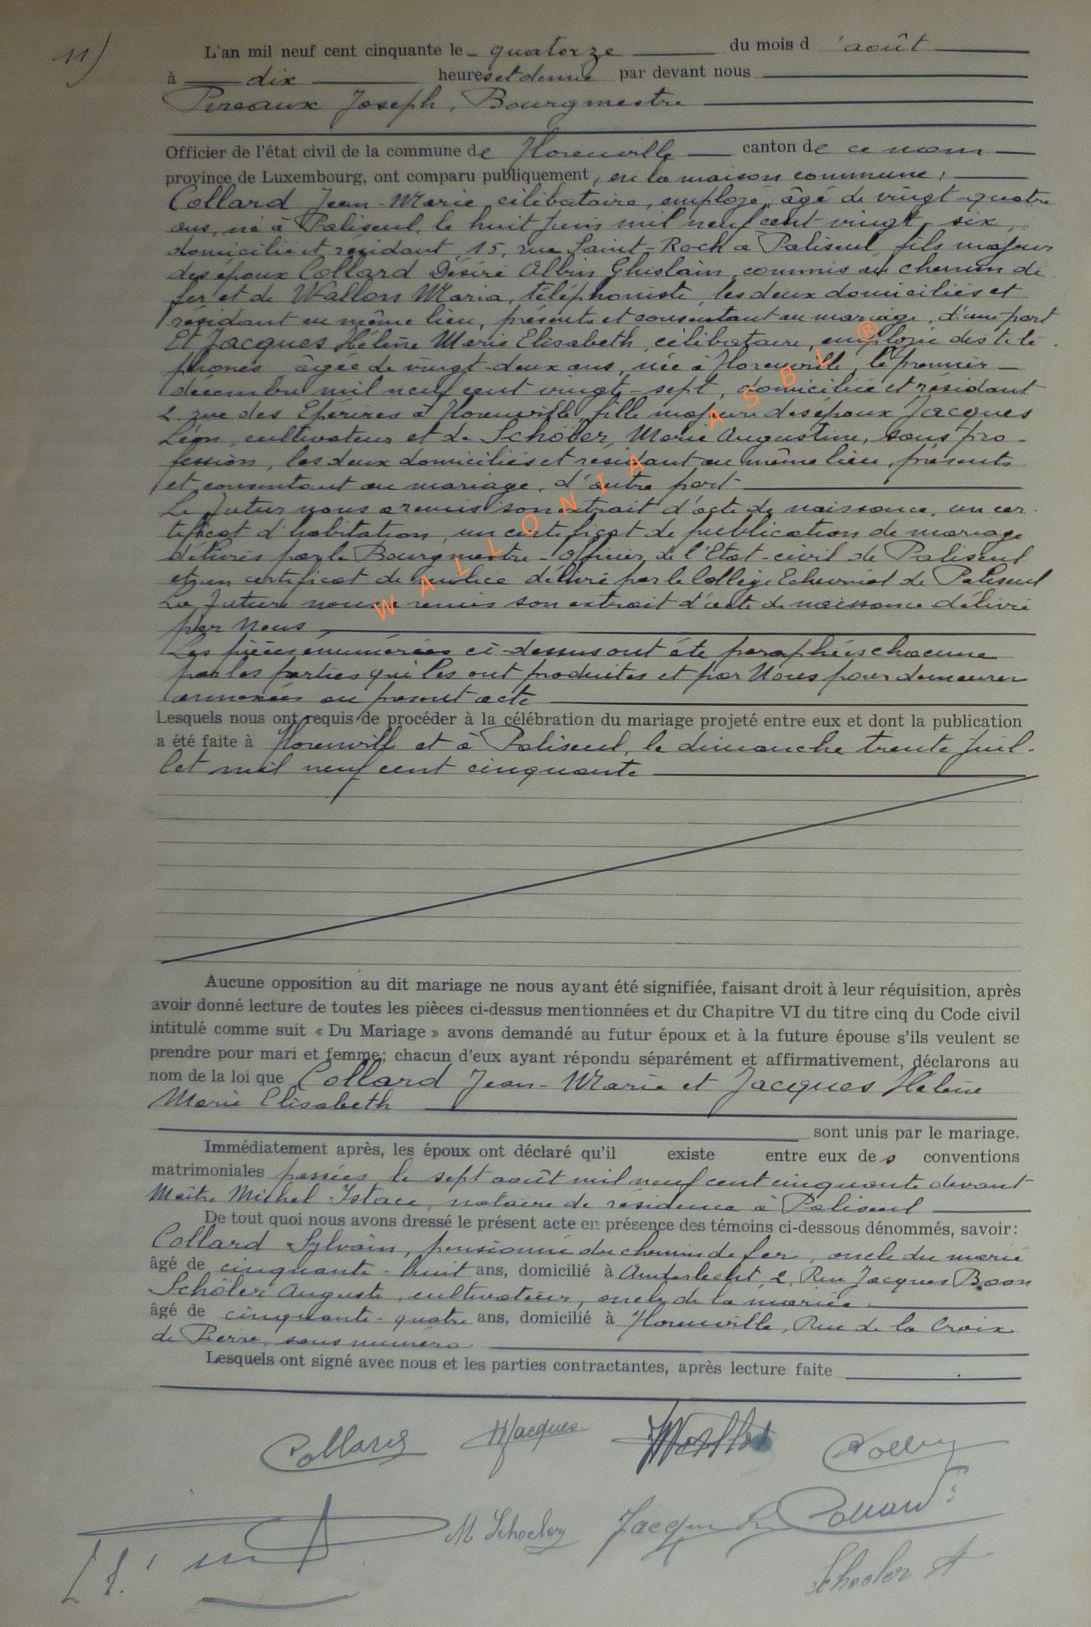 11)
L'an mil neuf cent cinquante le quatorze du mois d'août
à dix heures et demie par devant nous
Pireaux Joseph, Bourgmestre
Officier de l'état civil de la commune de Florenville canton de ce nom
province de Luxembourg, ont comparu publiquement, en la maison commune:
Collard Jean-Marie, célibataire, employé, âgé de vingt-quatre
ans, né à Paliseul, le huit juin mil neuf cent vingt-six,
domicilié et résidant, 15, rue Saint-Roch à Paliseul, fils majeur
des époux Collard Désiré Albin Ghislain, commis au chemin de
fer et de Wallon Maria, téléphoniste, les deux domiciliés et
résidant au même lieu, présents et consentant au mariage, d'une part
Et Jacques Hélène Marie Elisabeth, célibataire, employée des télé-
phones, âgée de vingt-deux ans, née à Florenville, le premier
décembre mil neuf cent vingt-sept, domiciliée et résidant
2, rue des Epérires à Florenville, fille majeure des époux Jacques
Léon, cultivateur et de Schöler, Marie Augustine, sans pro-
fession, les deux domiciliés et résidant au même lieu, présents
et consentant au mariage, d'autre part
Le futur nous a remis son extrait d'acte de naissance, un cer-
tificat d'habitation, un certificat de publication de mariage
délivrés par le Bourgmestre-Officier de l'Etat-civil de Paliseul
et un certificat de milice délivré par le Collège Echevinal de Paliseul
La future nous a remis son extrait d'acte de naissance délivré
par Nous
Les pièces énumérées ci-dessus ont été paraphées chacune
par les parties qui les ont produites et par Nous pour demeurer
annexées au présent acte
Lesquels nous ont requis de procéder à la célébration du mariage projeté entre eux et dont la publication
a été faite à Florenville et à Paliseul, le dimanche trente juil-
let mil neuf cent cinquante
Aucune opposition au dit mariage ne nous ayant été signifiée, faisant droit à leur réquisition, après
avoir donné lecture de toutes les pièces ci-dessus mentionnées et du Chapitre VI du titre cinq du Code civil
intitulé comme suit « Du Mariage » avons demandé au futur époux et à la future épouse s'ils veulent se
prendre pour mari et femme; chacun d'eux ayant répondu séparément et affirmativement, déclarons au
nom de la loi que Collard Jean-Marie et Jacques Hélène
Marie Elisabeth
sont unis par le mariage.
Immédiatement après, les époux ont déclaré qu'il existe entre eux des conventions
matrimoniales passées le sept août mil neuf cent cinquante devant
Maître Michel Istace, notaire de résidence à Paliseul
De tout quoi nous avons dressé le présent acte en présence des témoins ci-dessous dénommés, savoir:
Collard Sylvain, pensionné du chemin de fer, oncle du marié
âgé de cinquante-huit ans, domicilié à Anderlecht, 2, Rue Jacques Boon
Schöler Auguste, cultivateur, oncle de la mariée
âgé de cinquante-quatre ans, domicilié à Florenville, Rue de la Croix
de Pierre, sans numéro
Lesquels ont signé avec nous et les parties contractantes, après lecture faite
Collard HJacques
M Schoeler Jacques Collard
Schoeler A
WALLONIA ASBL ®